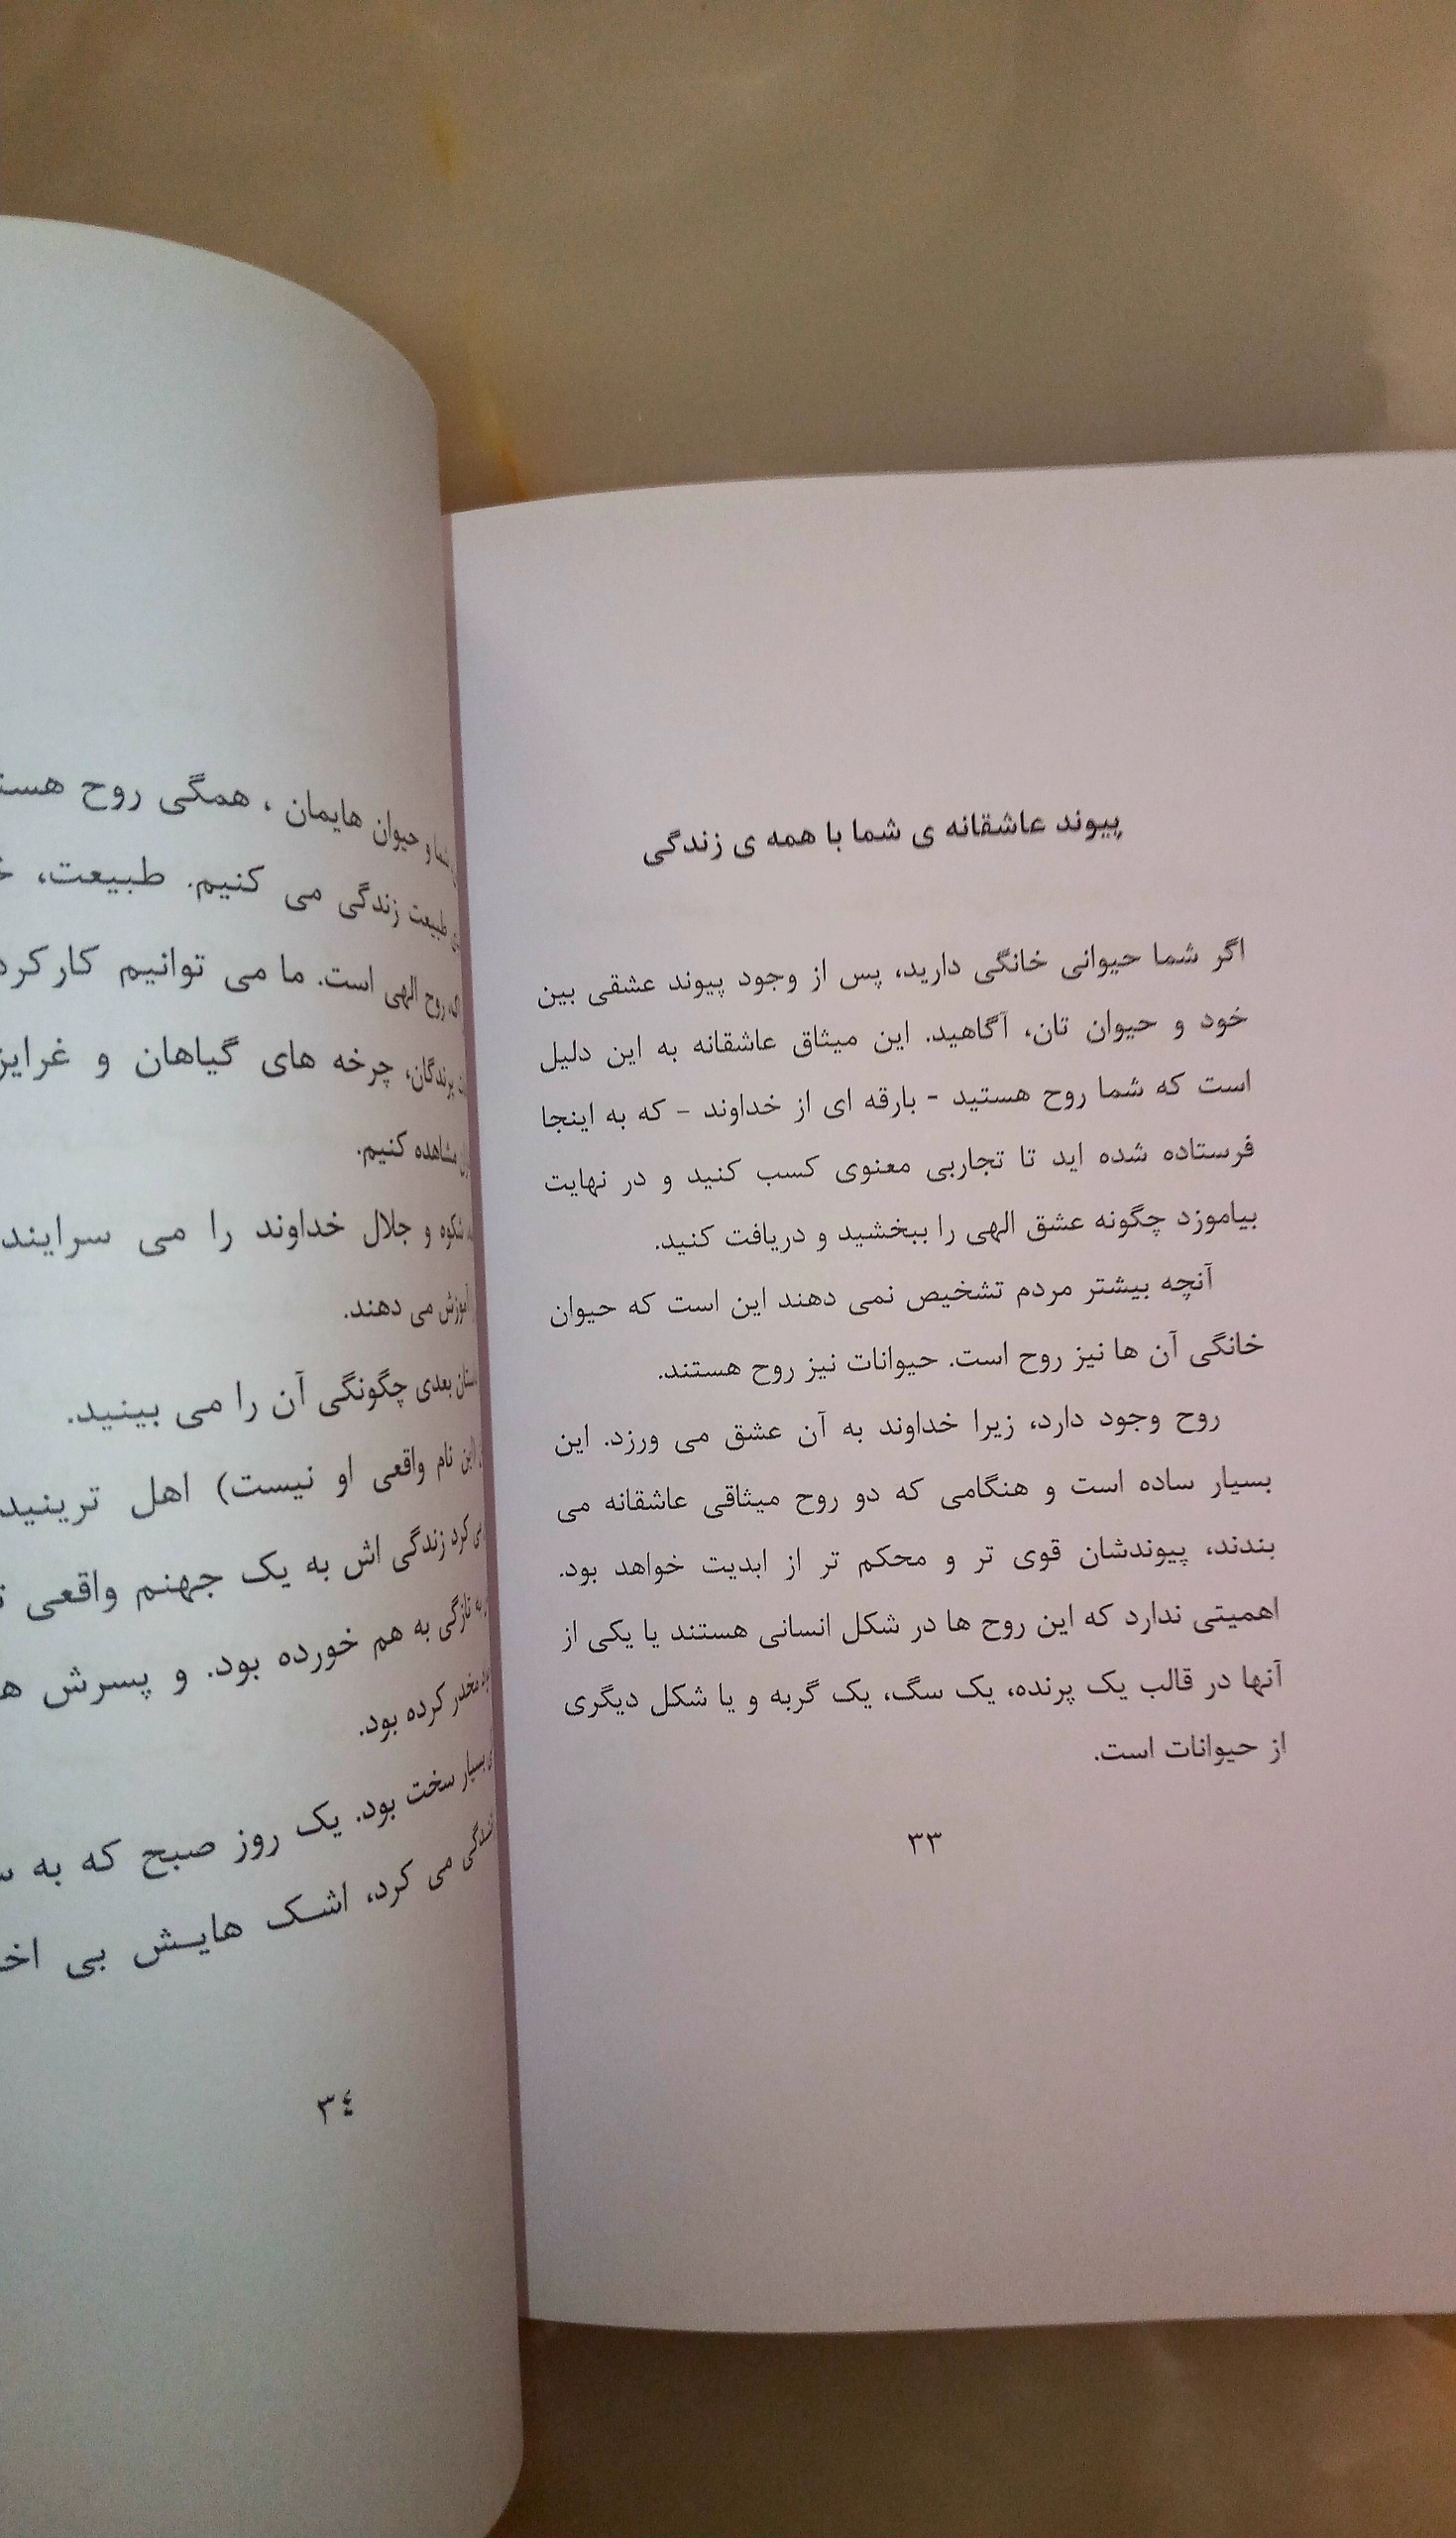 پیوند عاشقانه ی شما با همه ی زندگی
اگر شما حیوانی خانگی دارید، پس از وجود پیوند عشقی بین
خود و حیوان تان، آگاهید. این میثاق عاشقانه به این دلیل
است که شما روح هستید - بارقه ای از خداوند - که به اینجا
فرستاده شده اید تا تجاربی معنوی کسب کنید و در نهایت
بیاموزد چگونه عشق الهی را ببخشید و دریافت کنید.
آنچه بیشتر مردم تشخیص نمی دهند این است که حیوان
خانگی آن ها نیز روح است. حیوانات نیز روح هستند.
روح وجود دارد، زیرا خداوند به آن عشق می ورزد. این
بسیار ساده است و هنگامی که دو روح میثاقی عاشقانه می
بندند، پیوندشان قوی تر و محکم تر از ابدیت خواهد بود.
اهمیتی ندارد که این روح ها در شکل انسانی هستند یا یکی از
آنها در قالب یک پرنده، یک سگ، یک گربه و یا شکل دیگری
از حیوانات است.
۳۳
شما و حیوان هایمان ، همگی روح
طبیعت زندگی می کنیم. طبیعت،
روح الهی است. ما می توانیم کارکرد
پرندگان، چرخه های گیاهان و
مشاهده کنیم.
شکوه و جلال خداوند را می سرایند
آموزش می دهند.
بعدی چگونگی آن را می بینید.
(این نام واقعی او نیست) اهل
کرد زندگی اش به یک جهنم واقعی
تازگی به هم خورده بود. و پسرش
کرده بود.
بسیار سخت بود. یک روز صبح که به
می کرد، اشک هایش بی
۳٤